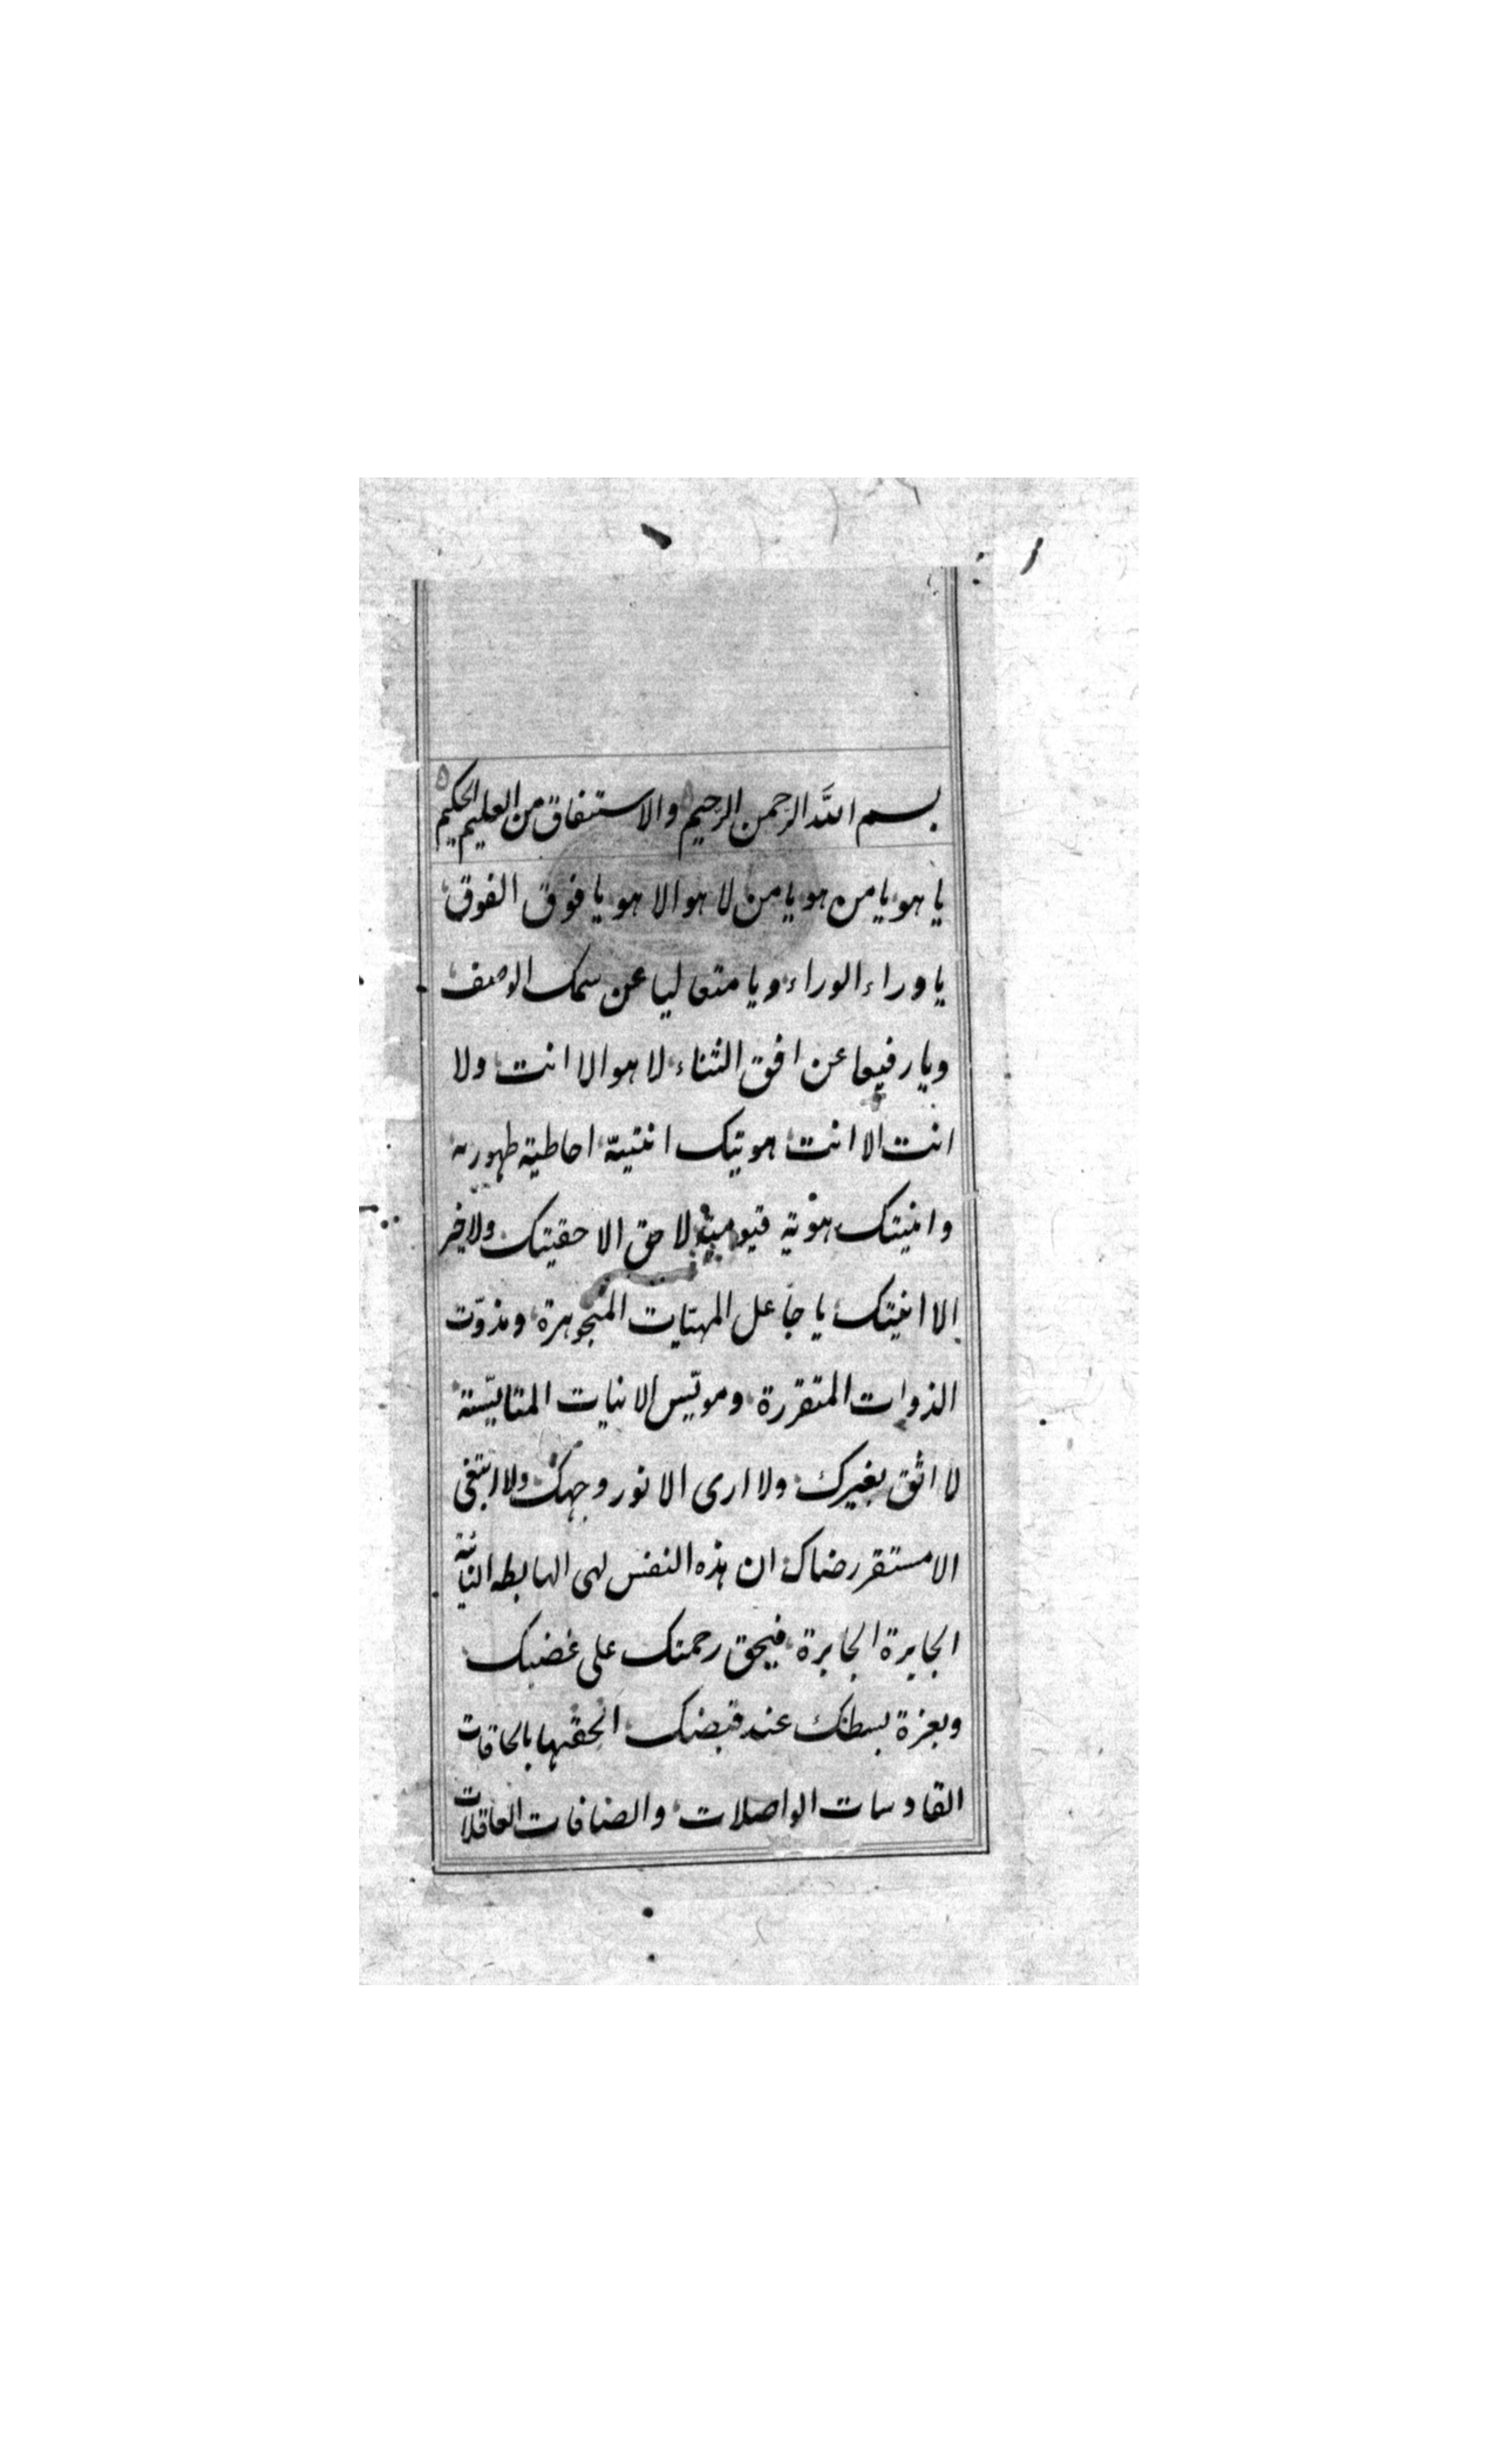 بسم الله الرحمن الرحيم والاستنفاق من العليم الحكيم
يا هو يا من هو يا من لا هو الا هو يا فوق الفوق
يا وراء الوراء ويا متعاليا عن سمك الوصف
ويا رفيعا عن افق الثناء لا هو الا انت ولا
انت الا انت هويتك انتيته احاطية ظهورية
وانيتك هوية قيومية لا حق الا حقيتك ولا خير
الا انيتك يا جاعل المهيات المتجوهرة ومذوّت
الذوات المتقررة ومويّس الانيات المتاليّسة
لا اثق بغيرك ولا ارى الا نور وجهك ولا ابتغى
الا مستقر رضاك ان هذه النفس لهى الهابطه
الجايرة الجابرة فبحق رحمتك على غضبك
وبعزة بسطتك عند قبضك الحقها بالحاقات
القادسات الواصلات والصافات العاقلات